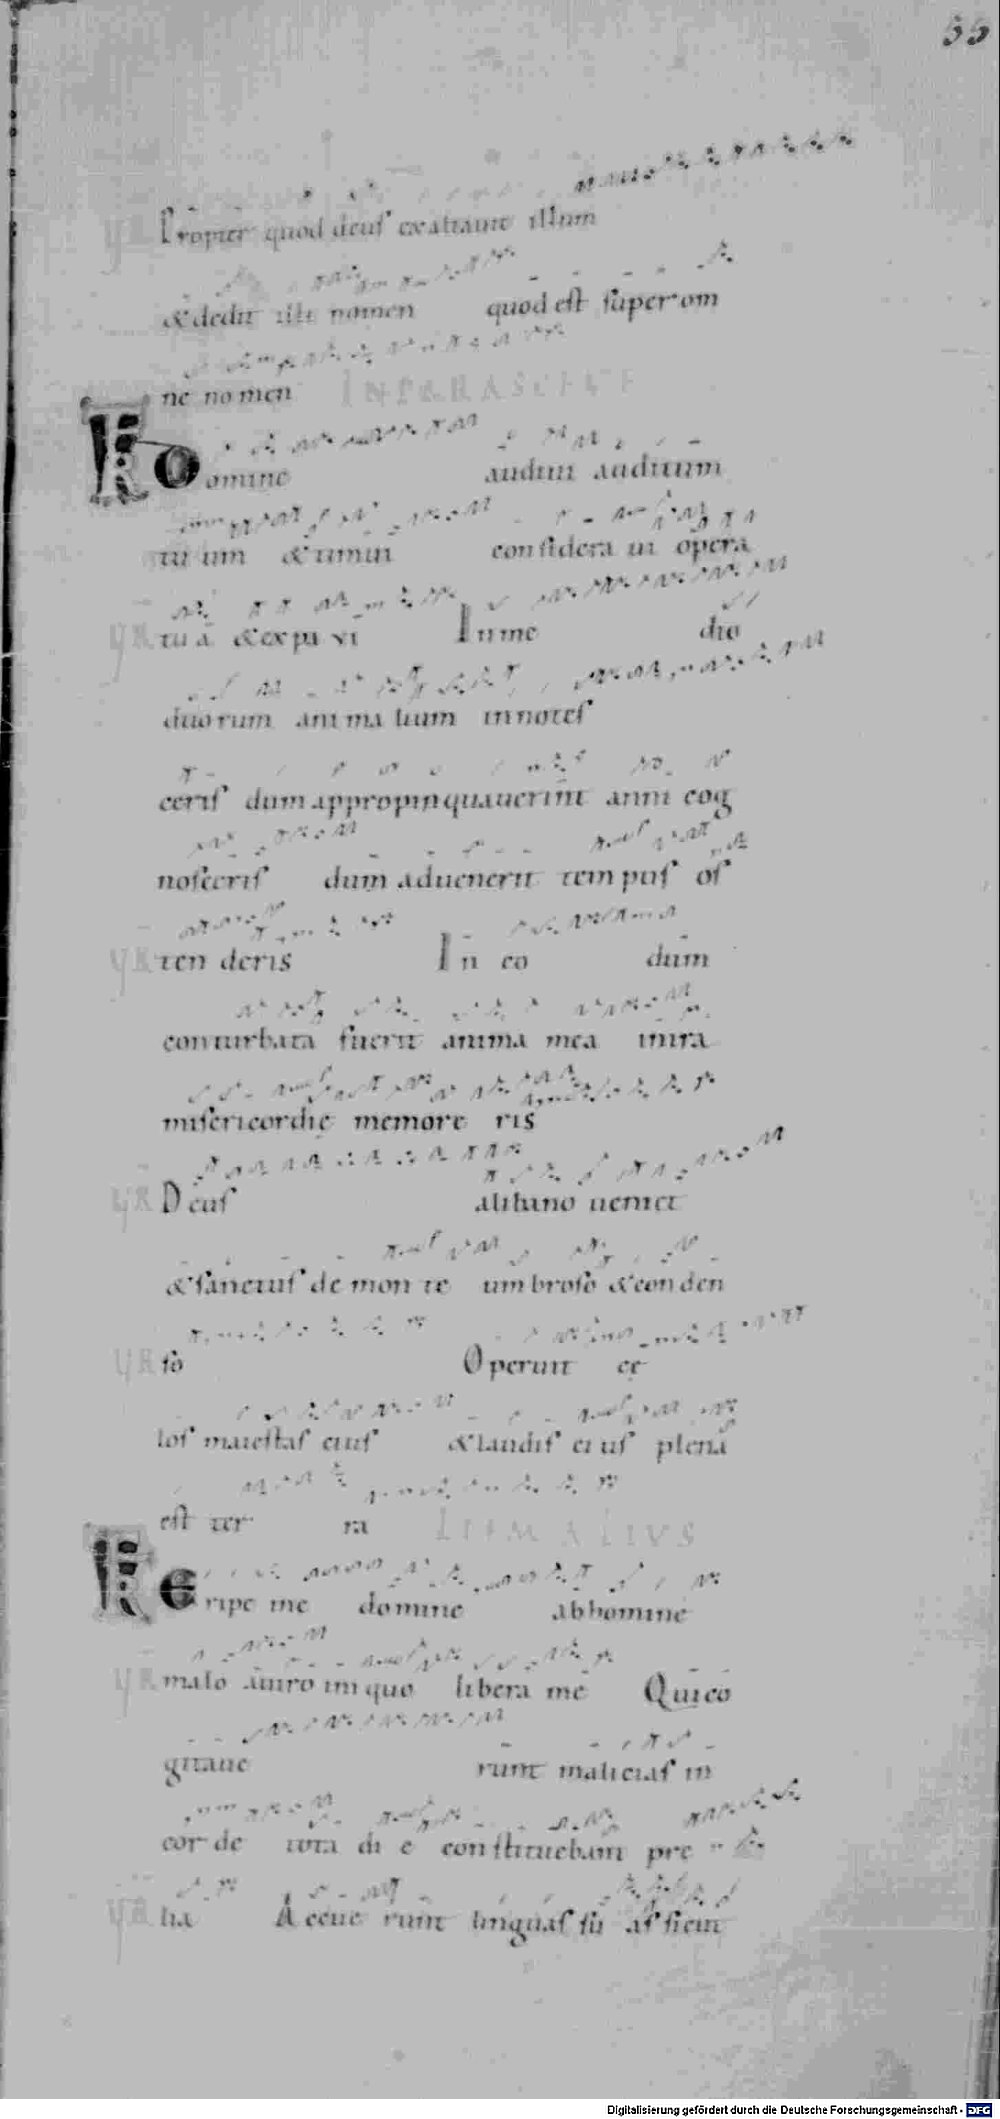 55
Propter quod deus exaltauit illum
& dedit illi nomen quod est super om
ne nomen IN PARASCEUE
Domine audiui auditum
tuum & timui consideraui opera
tua & expaui In me dio
duorum animalium innotes
ceris dum appropinquauerint anni cog
nosceris dum aduenerit tempus os
tenderis In eo dum
conturbata fuerit anima mea in ira
misericordie memore ris
Deus a libano ueniet
& sanctus de monte umbroso & conden
so Operuit ce
los maiestas eius & laudis eius plena
est ter ra
Eripe me domine ab homine
malo a uiro iniquo libera me Qui co
gitaue runt malicias in
corde tota die constituebant pre
lia Acceue runt linguas suas sicut
Digitalisierung gefördert durch die Deutsche Forschungsgemeinschaft - DFG